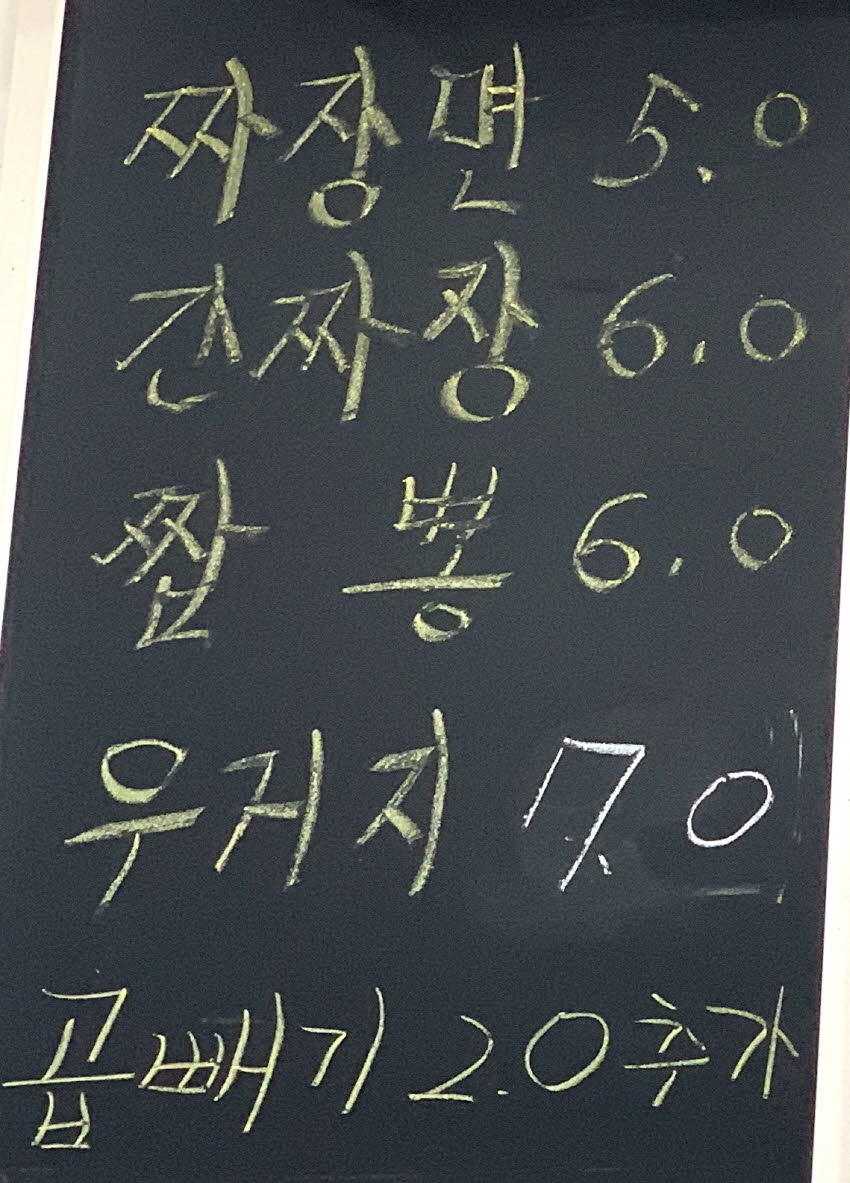 짜장면 5.0
간짜장 6.0
짬 뽕 6.0
우거지 7.0
곱빼기 2.0 추가